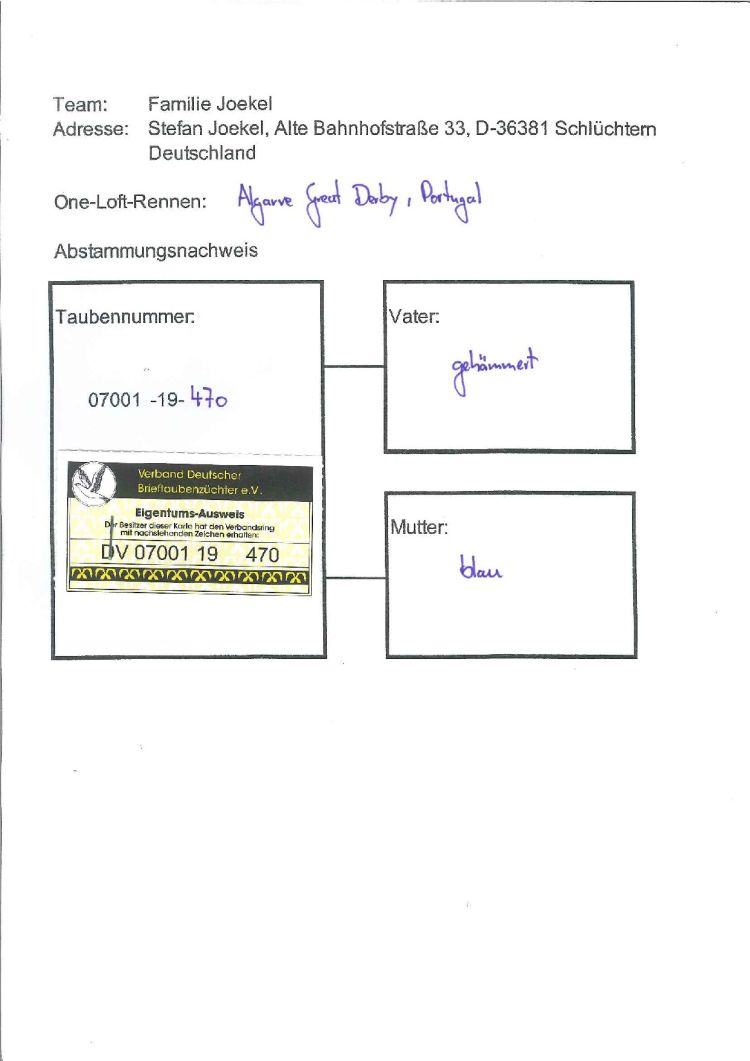 Team: Familie Joekel
Adresse: Stefan Joekel, Alte Bahnhofstraße 33, D-36381 Schlüchtern
Deutschland
One-Loft-Rennen: Algarve Great Derby, Portugal
Abstammungsnachweis
Taubennummer:
07001 -19- 470
Verband Deutscher
Brieftaubenzüchter e.V.
Eigentums-Ausweis
Der Besitzer dieser Karte hat den Verbandsring
mit nachstehenden Zeichen erhalten:
DV 07001 19 470
Vater:
gehämmert
Mutter:
blau